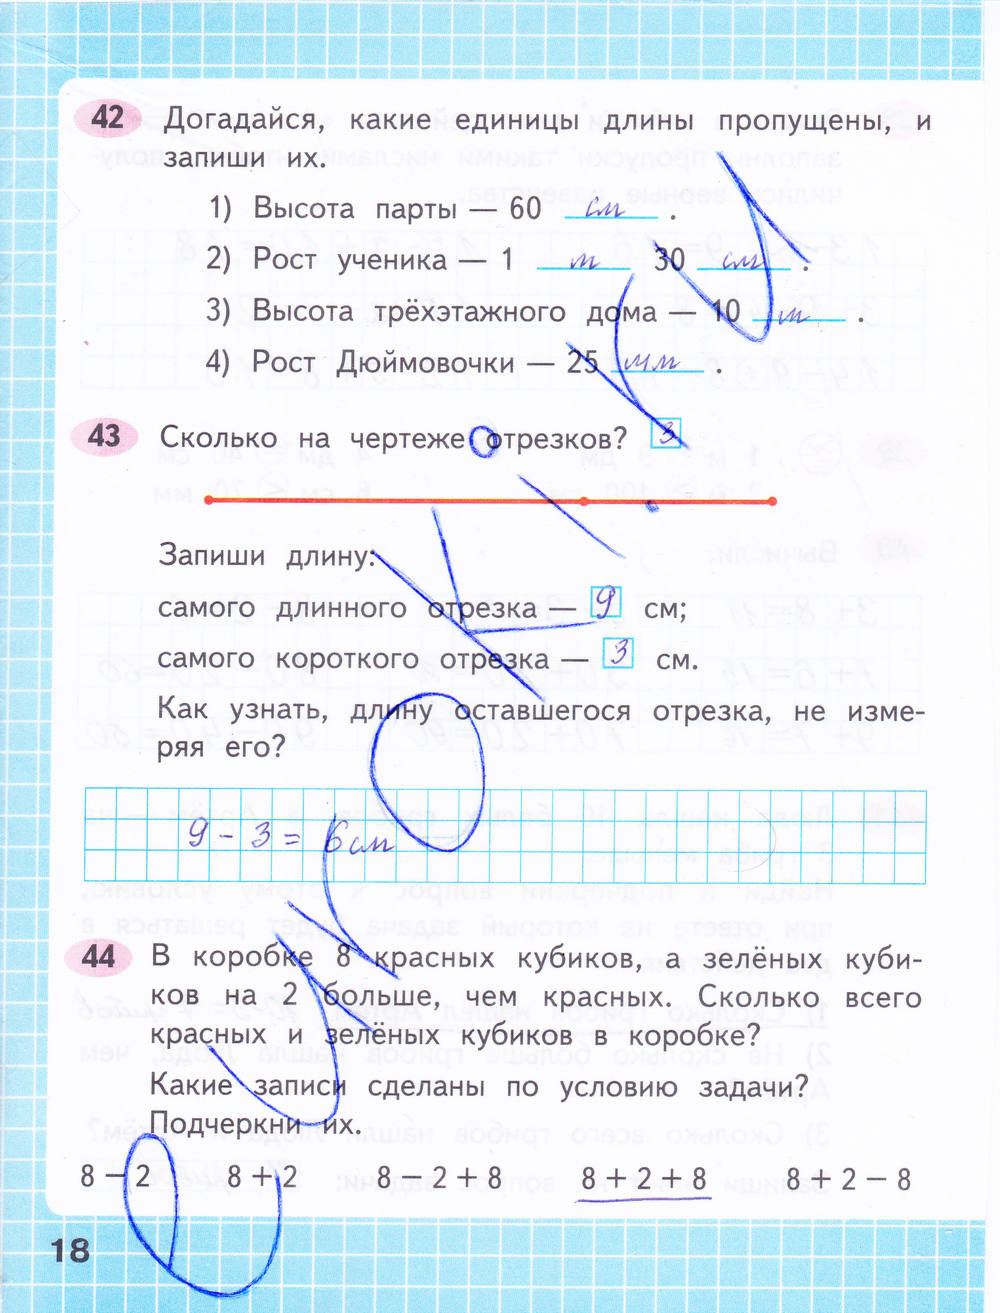 42 Догадайся, какие единицы длины пропущены, и
запиши их.
1) Высота парты — 60 см .
2) Рост ученика — 1 м 30 см .
3) Высота трёхэтажного дома — 10 м .
4) Рост Дюймовочки — 25 мм .
43 Сколько на чертеже отрезков? 3
Запиши длину:
самого длинного отрезка — 9 см;
самого короткого отрезка — 3 см.
Как узнать, длину оставшегося отрезка, не изме-
ряя его?
9 - 3 = 6 см
44 В коробке 8 красных кубиков, а зелёных куби-
ков на 2 больше, чем красных. Сколько всего
красных и зелёных кубиков в коробке?
Какие записи сделаны по условию задачи?
Подчеркни их.
8 – 2 8 + 2 8 – 2 + 8 8 + 2 + 8 8 + 2 – 8
18